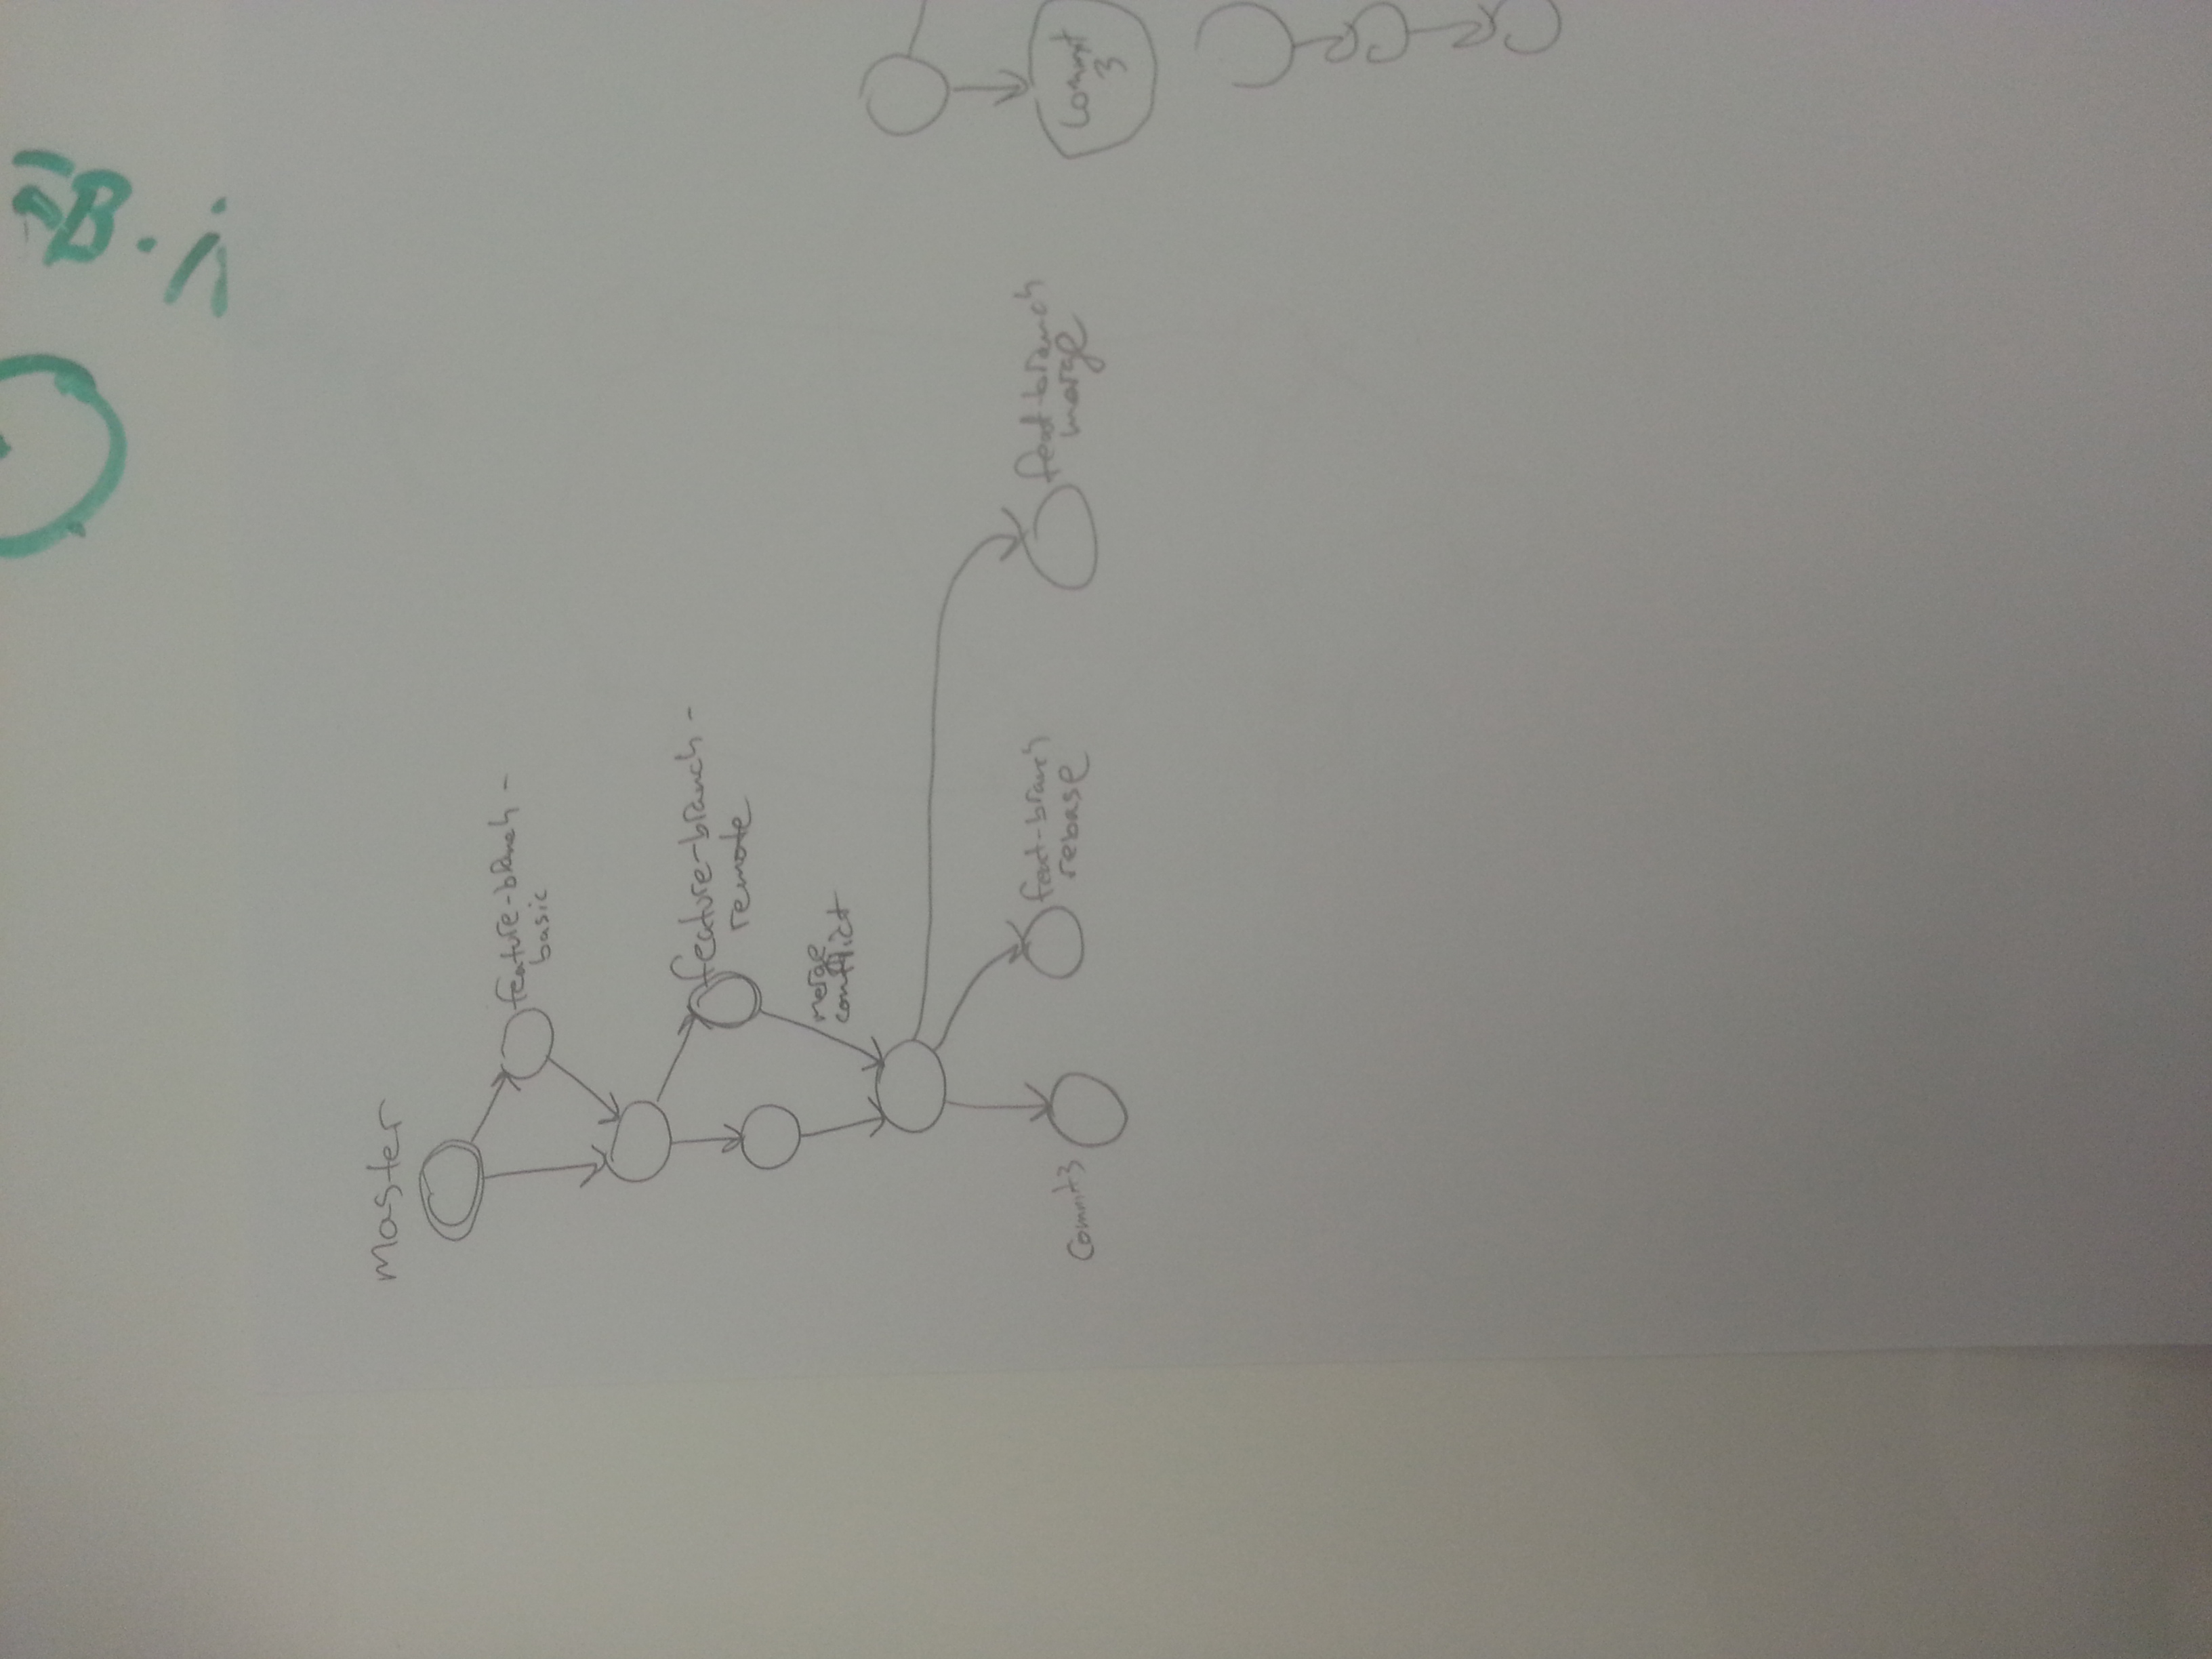 Master
feature-branch-
basic
feature-branch-
remote
merge
conflict
Commit3
feat-branch
rebase
feat-branch
merge
commit
3